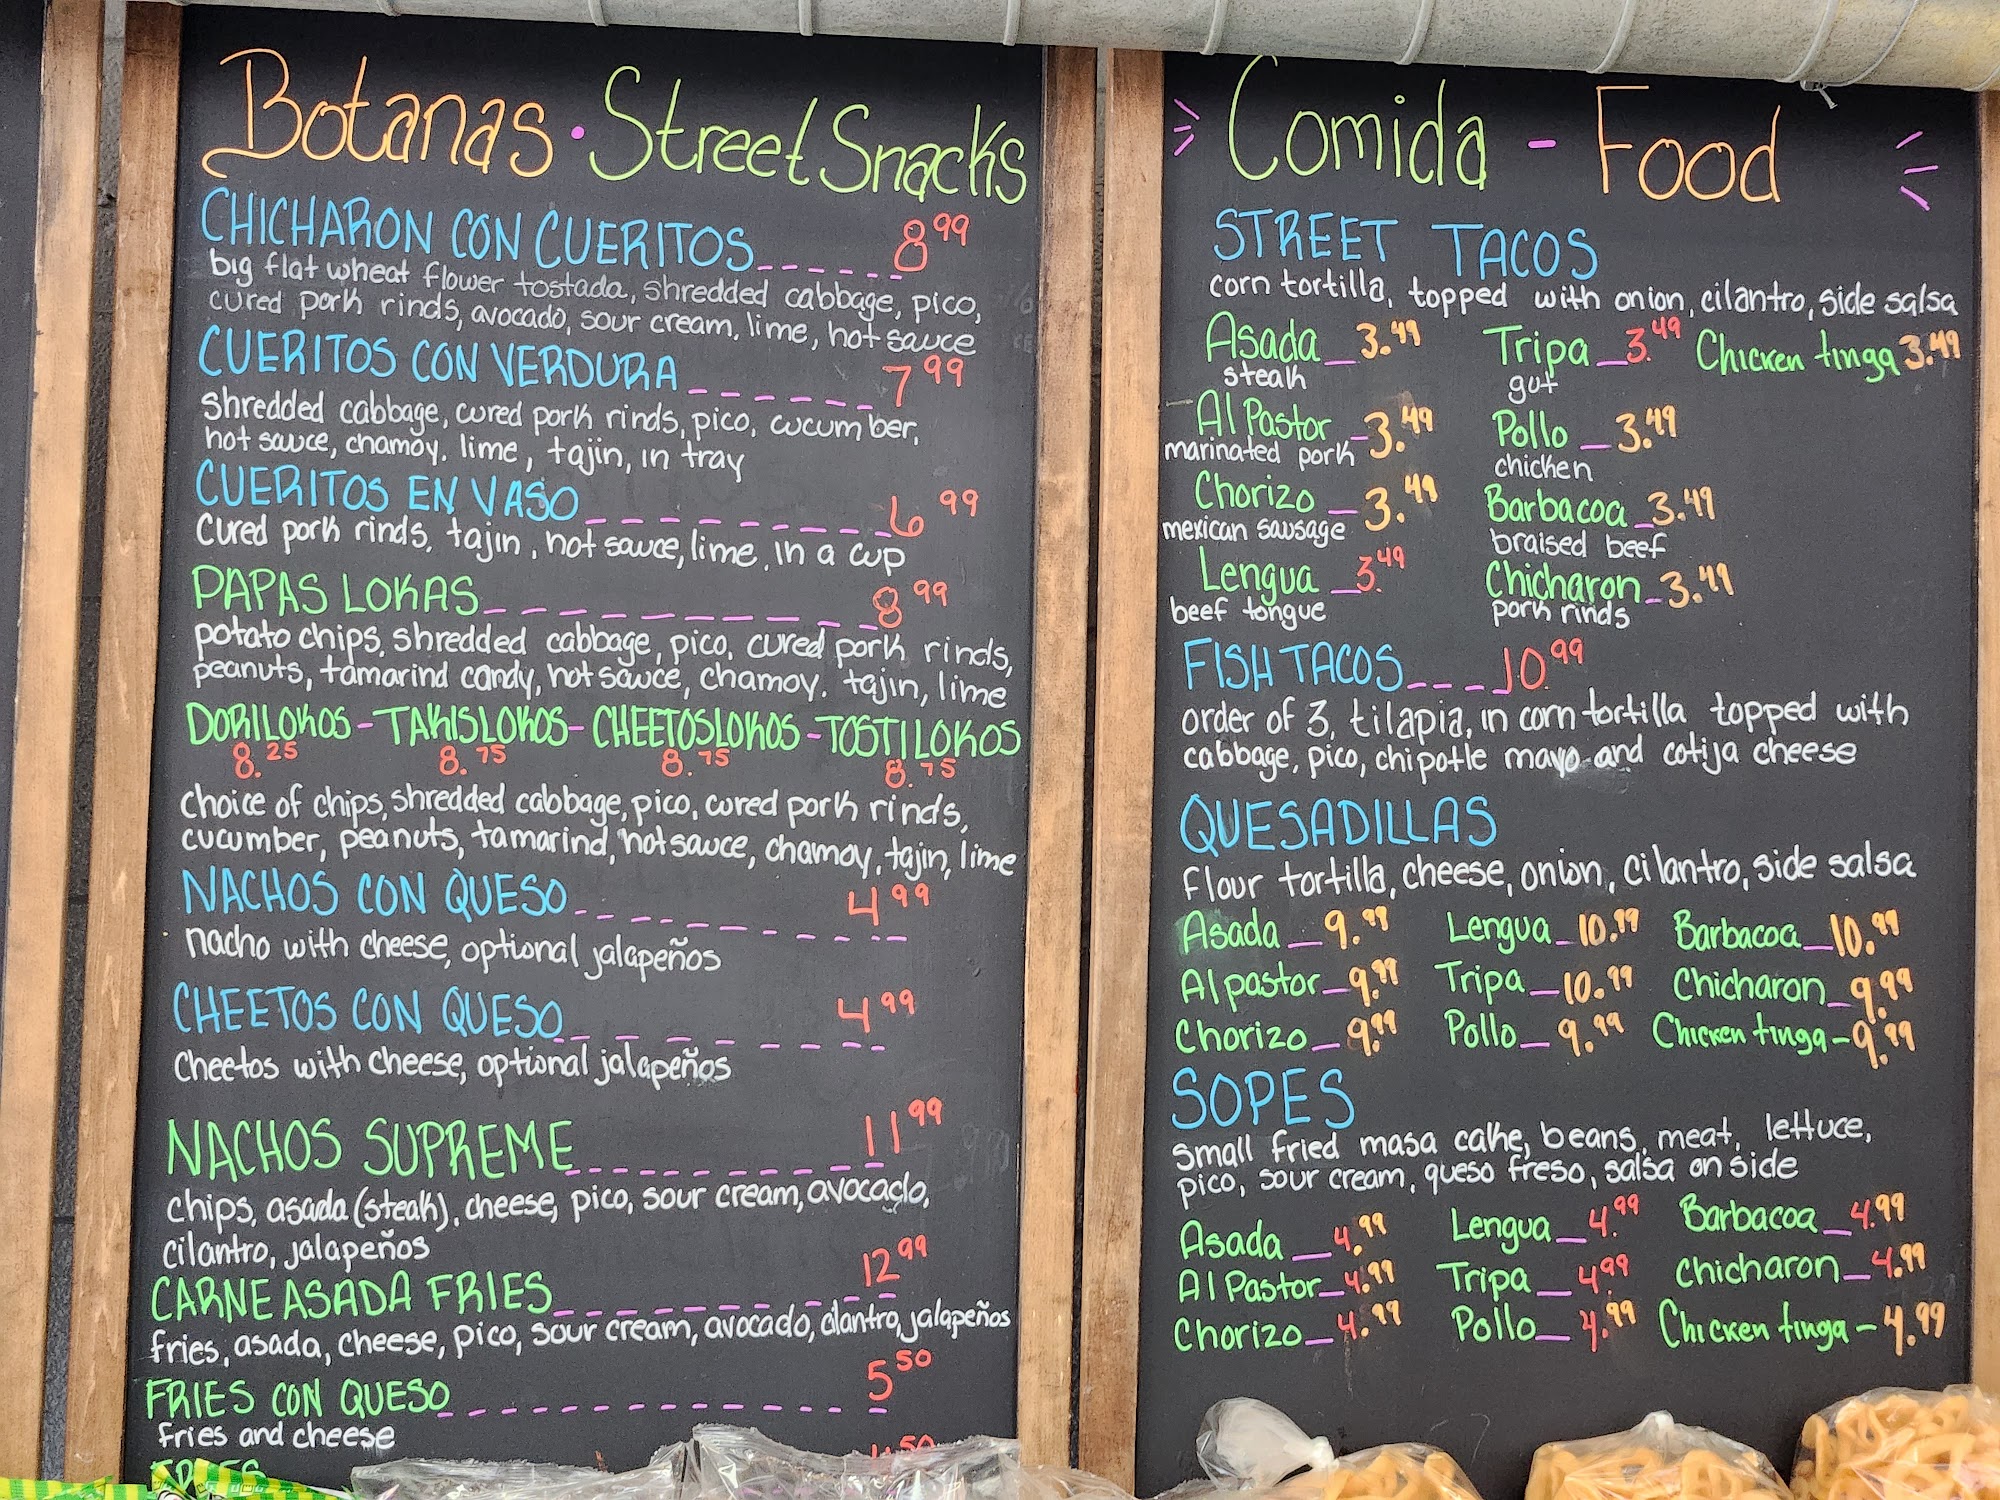 Botanas • Street Snacks
CHICHARON CON CUERITOS 8.99
big flat wheat flower tostada, shredded cabbage, pico,
cured pork rinds, avocado, sour cream, lime, hot sauce
CUERITOS CON VERDURA 7.99
shredded cabbage, cured pork rinds, pico, cucumber,
hot sauce, chamoy. lime, tajin, in tray
CUERITOS EN VASO 6.99
Cured pork rinds, tajin, hot sauce, lime, in a cup
PAPAS LOKAS 8.99
potato chips, shredded cabbage, pico, cured pork rinds,
peanuts, tamarind candy, hot sauce, chamoy. tajin, lime
DORILOKOS - TAKISLOKOS - CHEETOSLOKOS - TOSTILOKOS
8.25 8.75 8.75 8.75
choice of chips, shredded cabbage, pico, cured pork rinds,
cucumber, peanuts, tamarind, hot sauce, chamoy, tajin, lime
NACHOS CON QUESO 4.99
nacho with cheese, optional jalapeños
CHEETOS CON QUESO 4.99
Cheetos with cheese, optional jalapeños
NACHOS SUPREME 11.99
chips, asada (steak), cheese, pico, sour cream, avocado,
cilantro, jalapeños
CARNE ASADA FRIES 12.99
fries, asada, cheese, pico, sour cream, avocado, cilantro, jalapeños
FRIES CON QUESO 5.50
fries and cheese
Comida - Food
STREET TACOS
corn tortilla, topped with onion, cilantro, side salsa
Asada 3.49 Tripa 3.49 Chicken tinga 3.49
steak gut
Al Pastor 3.49 Pollo 3.49
marinated pork chicken
Chorizo 3.49 Barbacoa 3.49
mexican sausage braised beef
Lengua 3.49 Chicharon 3.49
beef tongue pork rinds
FISH TACOS 10.99
order of 3, tilapia, in corn tortilla topped with
cabbage, pico, chipotle mayo and cotija cheese
QUESADILLAS
flour tortilla, cheese, onion, cilantro, side salsa
Asada 9.99 Lengua 10.99 Barbacoa 10.99
Al pastor 9.99 Tripa 10.99 Chicharon 9.99
Chorizo 9.99 Pollo 9.99 Chicken tinga - 9.99
SOPES
small fried masa cake, beans, meat, lettuce,
pico, sour cream, queso freso, salsa on side
Asada 4.99 Lengua 4.99 Barbacoa 4.99
Al Pastor 4.99 Tripa 4.99 chicharon 4.99
Chorizo 4.99 Pollo 4.99 Chicken tinga - 4.99